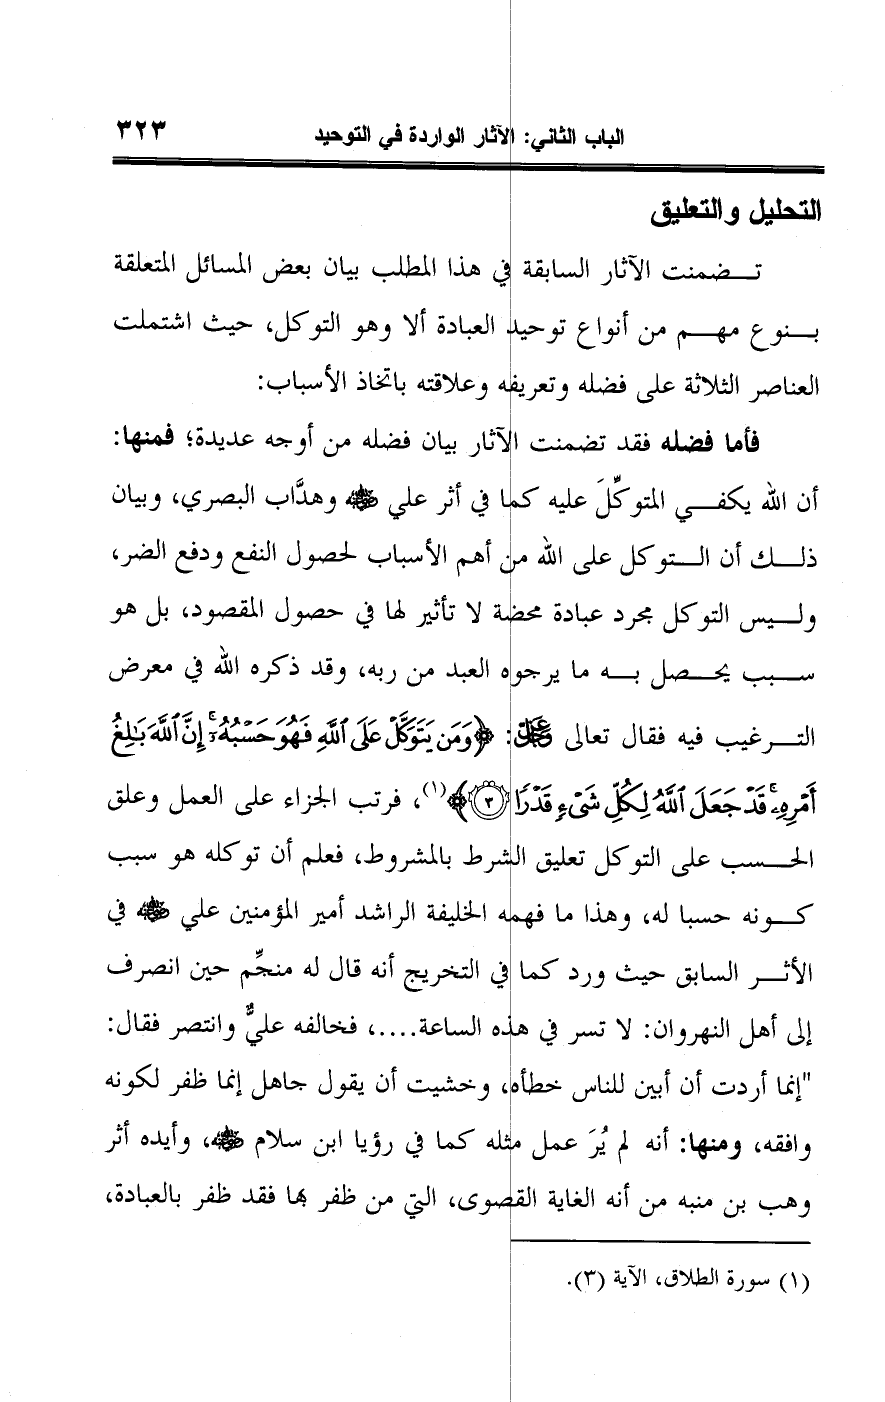 الباب الثاني: الآثار الواردة في التوحيد ٣٢٣
التحليل والتعليق
تـضمنت الآثار السابقة في هذا المطلب بيان بعض المسائل المتعلقة
بـنوع مهـم من أنواع توحيد العبادة ألا وهو التوكل، حيث اشتملت
العناصر الثلاثة على فضله وتعريفه وعلاقته باتخاذ الأسباب:
فأما فضله فقد تضمنت الآثار بيان فضله من أوجه عديدة؛ فمنها:
أن الله يكفـي المتوكِّلَ عليه كما في أثر علي ﵁ وهدَّاب البصري، وبيان
ذلـك أن الـتوكل على الله من أهم الأسباب لحصول النفع ودفع الضر،
ولـيس التوكل مجرد عبادة محضة لا تأثير لها في حصول المقصود، بل هو
سـبب يحـصل بـه ما يرجوه العبد من ربه، وقد ذكره الله في معرض
التـرغيب فيه فقال تعالى: ﴿وَمَن يَتَوَكَّلْ عَلَى ٱللَّهِ فَهُوَ حَسْبُهُۥٓ إِنَّ ٱللَّهَ بَٰلِغُ
أَمْرِهِۦ قَدْ جَعَلَ ٱللَّهُ لِكُلِّ شَىْءٍ قَدْرًا ٣﴾(١)، فرتب الجزاء على العمل وعلق
الحـسب على التوكل تعليق الشرط بالمشروط، فعلم أن توكله هو سبب
كـونه حسبا له، وهذا ما فهمه الخليفة الراشد أمير المؤمنين علي ﵁ في
الأثـر السابق حيث ورد كما في التخريج أنه قال له منجِّم حين انصرف
إلى أهل النهروان: لا تسر في هذه الساعة....، فخالفه عليٌّ وانتصر فقال:
"إنما أردت أن أبين للناس خطأه، وخشيت أن يقول جاهل إنما ظفر لكونه
وافقه، ومنها: أنه لم يُرَ عمل مثله كما في رؤيا ابن سلام ﵁، وأيده أثر
وهب بن منبه من أنه الغاية القصوى، التي من ظفر بها فقد ظفر بالعبادة،
(١) سورة الطلاق، الآية (٣).